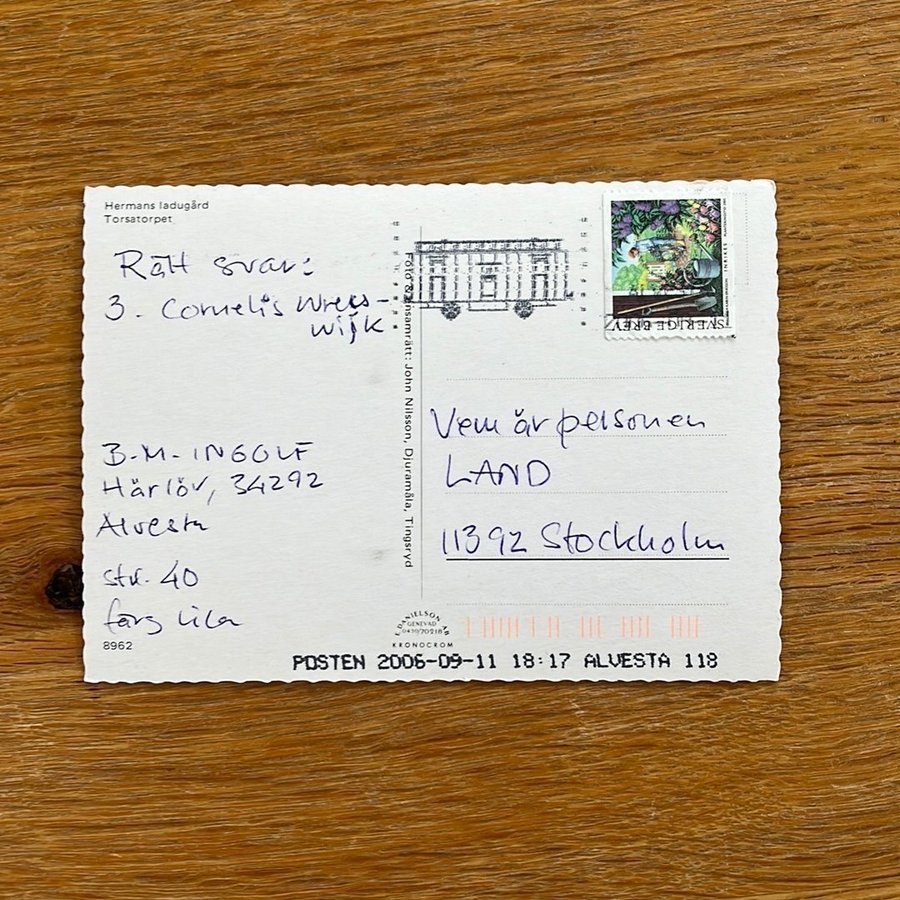 Hermans ladugård
Torsatorpet
Rätt svar:
3. Cornelis Wrees-
wijk
B-M-INGOLF
Härlöv, 34292
Alvesta
stl. 40
färg lila
8962
Foto & ensamrätt: John Nilsson, Djuramåla, Tingsryd
SVERIGE BREV
INRIKES
Vem är personen
LAND
11392 Stockholm
L. DANIELSON AB
GENEVAD
0430/70218
KRONOCROM
POSTEN 2006-09-11 18:17 ALVESTA 118